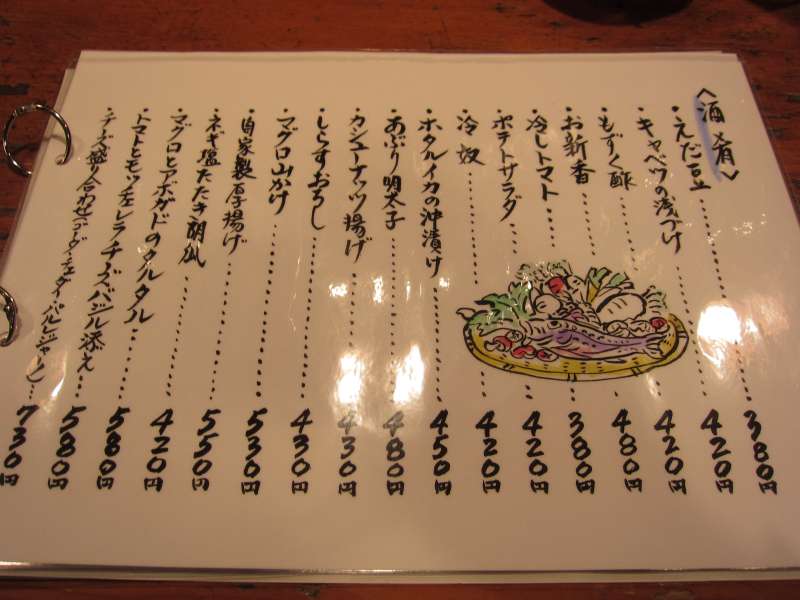 〈酒肴〉
・えだ豆……380円
・キャベツの浅づけ……420円
・もずく酢……420円
・お新香……480円
・冷しトマト……380円
・ポテトサラダ……420円
・冷奴……420円
・ホタルイカの沖漬け……450円
・あぶり明太子……480円
・カシューナッツ揚げ……430円
・しらすおろし……430円
・マグロ山かけ……530円
・自家製厚揚げ……550円
・ネギ塩たたき胡瓜……420円
・マグロとアボガドのタルタル……580円
・トマトとモッツェレラチーズバジル添え……580円
・チーズ盛り合わせ(ゴーダ・チェダー・パルジャーノ)……730円